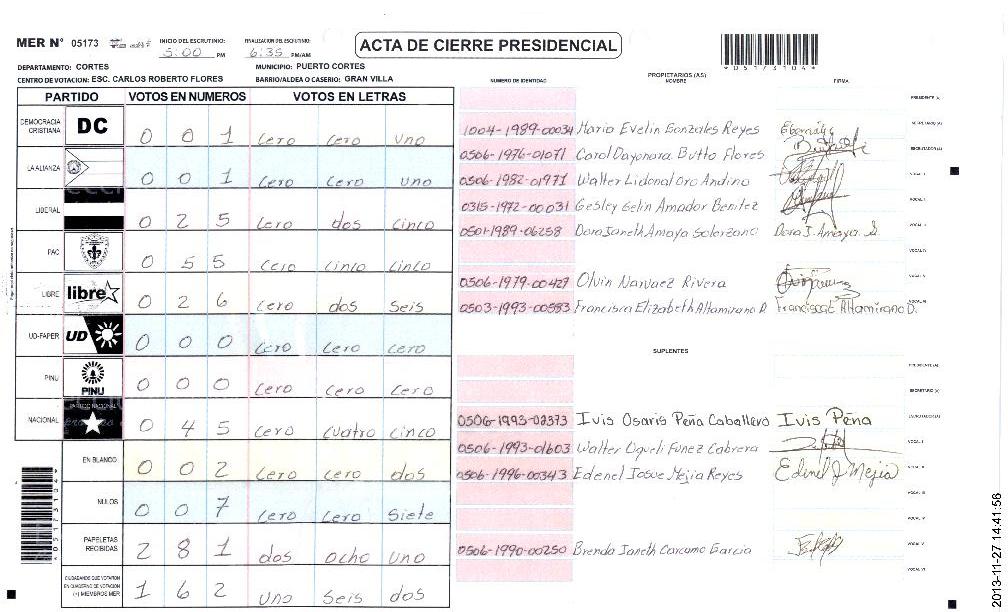 MER N° 05173
INICIO DEL ESCRUTINIO: 5:00 PM
FINALIZACION DEL ESCRUTINIO: 6:35 PM/AM
ACTA DE CIERRE PRESIDENCIAL
*05173104*
DEPARTAMENTO: CORTES
MUNICIPIO: PUERTO CORTES
CENTRO DE VOTACION: ESC. CARLOS ROBERTO FLORES
BARRIO/ALDEA O CASERIO: GRAN VILLA
PARTIDO VOTOS EN NUMEROS VOTOS EN LETRAS
DEMOCRACIA CRISTIANA DC 0 0 1 Cero Cero uno
LA ALIANZA 0 0 1 Cero Cero uno
LIBERAL 0 2 5 Cero dos Cinco
PAC 0 5 5 Cero Cinco Cinco
LIBRE libre 0 2 6 Cero dos Seis
UD-FAPER UD 0 0 0 Cero Cero Cero
PINU PINU 0 0 0 Cero Cero Cero
NACIONAL PARTIDO NACIONAL 0 4 5 Cero Cuatro Cinco
EN BLANCO 0 0 2 Cero Cero dos
NULOS 0 0 7 Cero Cero Siete
PAPELETAS RECIBIDAS 2 8 1 dos ocho uno
CIUDADANOS QUE VOTARON EN CUADERNO DE VOTACION (+) MIEMBROS MER 1 6 2 uno Seis dos
NUMERO DE IDENTIDAD PROPIETARIOS (AS) NOMBRE FIRMA
PRESIDENTE (A)
1004-1989-00034 Maria Evelin Gonzales Reyes SECRETARIO (A)
0506-1976-01071 Carol Dayanara Butto Flores ESCRUTADOR (A)
0506-1982-01971 Walter Lidonal Oro Andino VOCAL I
0315-1972-00031 Gesley Gelin Amador Benitez VOCAL II
0501-1989-06258 Dora Janeth Amaya Solorzano Dora J. Amaya. S VOCAL III
VOCAL IV
0506-1979-00427 Olvin Narvaez Rivera VOCAL V
0503-1993-00583 Francisca Elizabeth Altamirano D. Francisca E Altamirano D. VOCAL VI
SUPLENTES
PRESIDENTE (A)
SECRETARIO (A)
0506-1993-02373 Ivis Osaris Peña Caballero Ivis Peña ESCRUTADOR (A)
0506-1993-01603 Walter Oqueli Funez Cabrera VOCAL I
0506-1996-00343 Edenel Josue Mejia Reyes Edenel J Mejia VOCAL II
VOCAL III
VOCAL IV
0506-1990-00250 Brenda Janeth Carcamo Garcia VOCAL V
VOCAL VI
*05173104*
2013-11-27 14:41:56